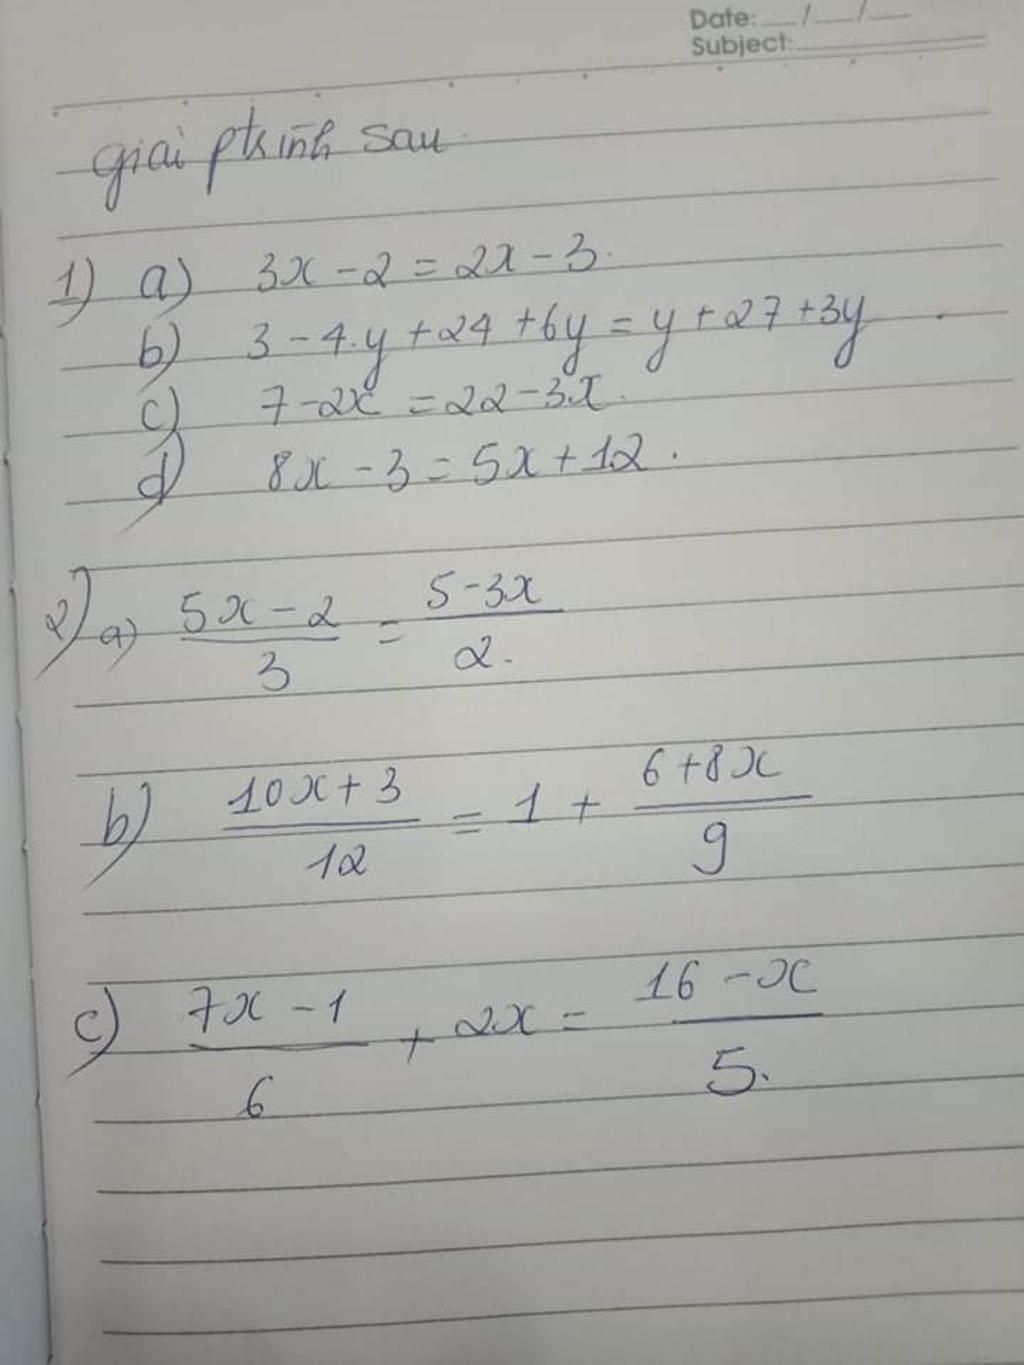 Date: __/__/__
Subject:
giải ptrình sau
1) a) 3x - 2 = 2x - 3.
b) 3 - 4.y + 24 + 6y = y + 27 + 3y
c) 7 - 2x = 22 - 3x.
d) 8x - 3 = 5x + 12.
2) a) (5x - 2)/3 = (5 - 3x)/2.
b) (10x + 3)/12 = 1 + (6 + 8x)/9
c) (7x - 1)/6 + 2x = (16 - x)/5.